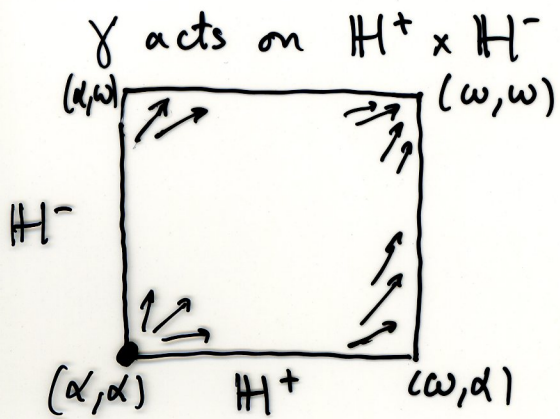 γ acts on ℍ⁺ × ℍ⁻
(α,ω) (ω,ω)
ℍ⁻
(α,α) ℍ⁺ (ω,α)